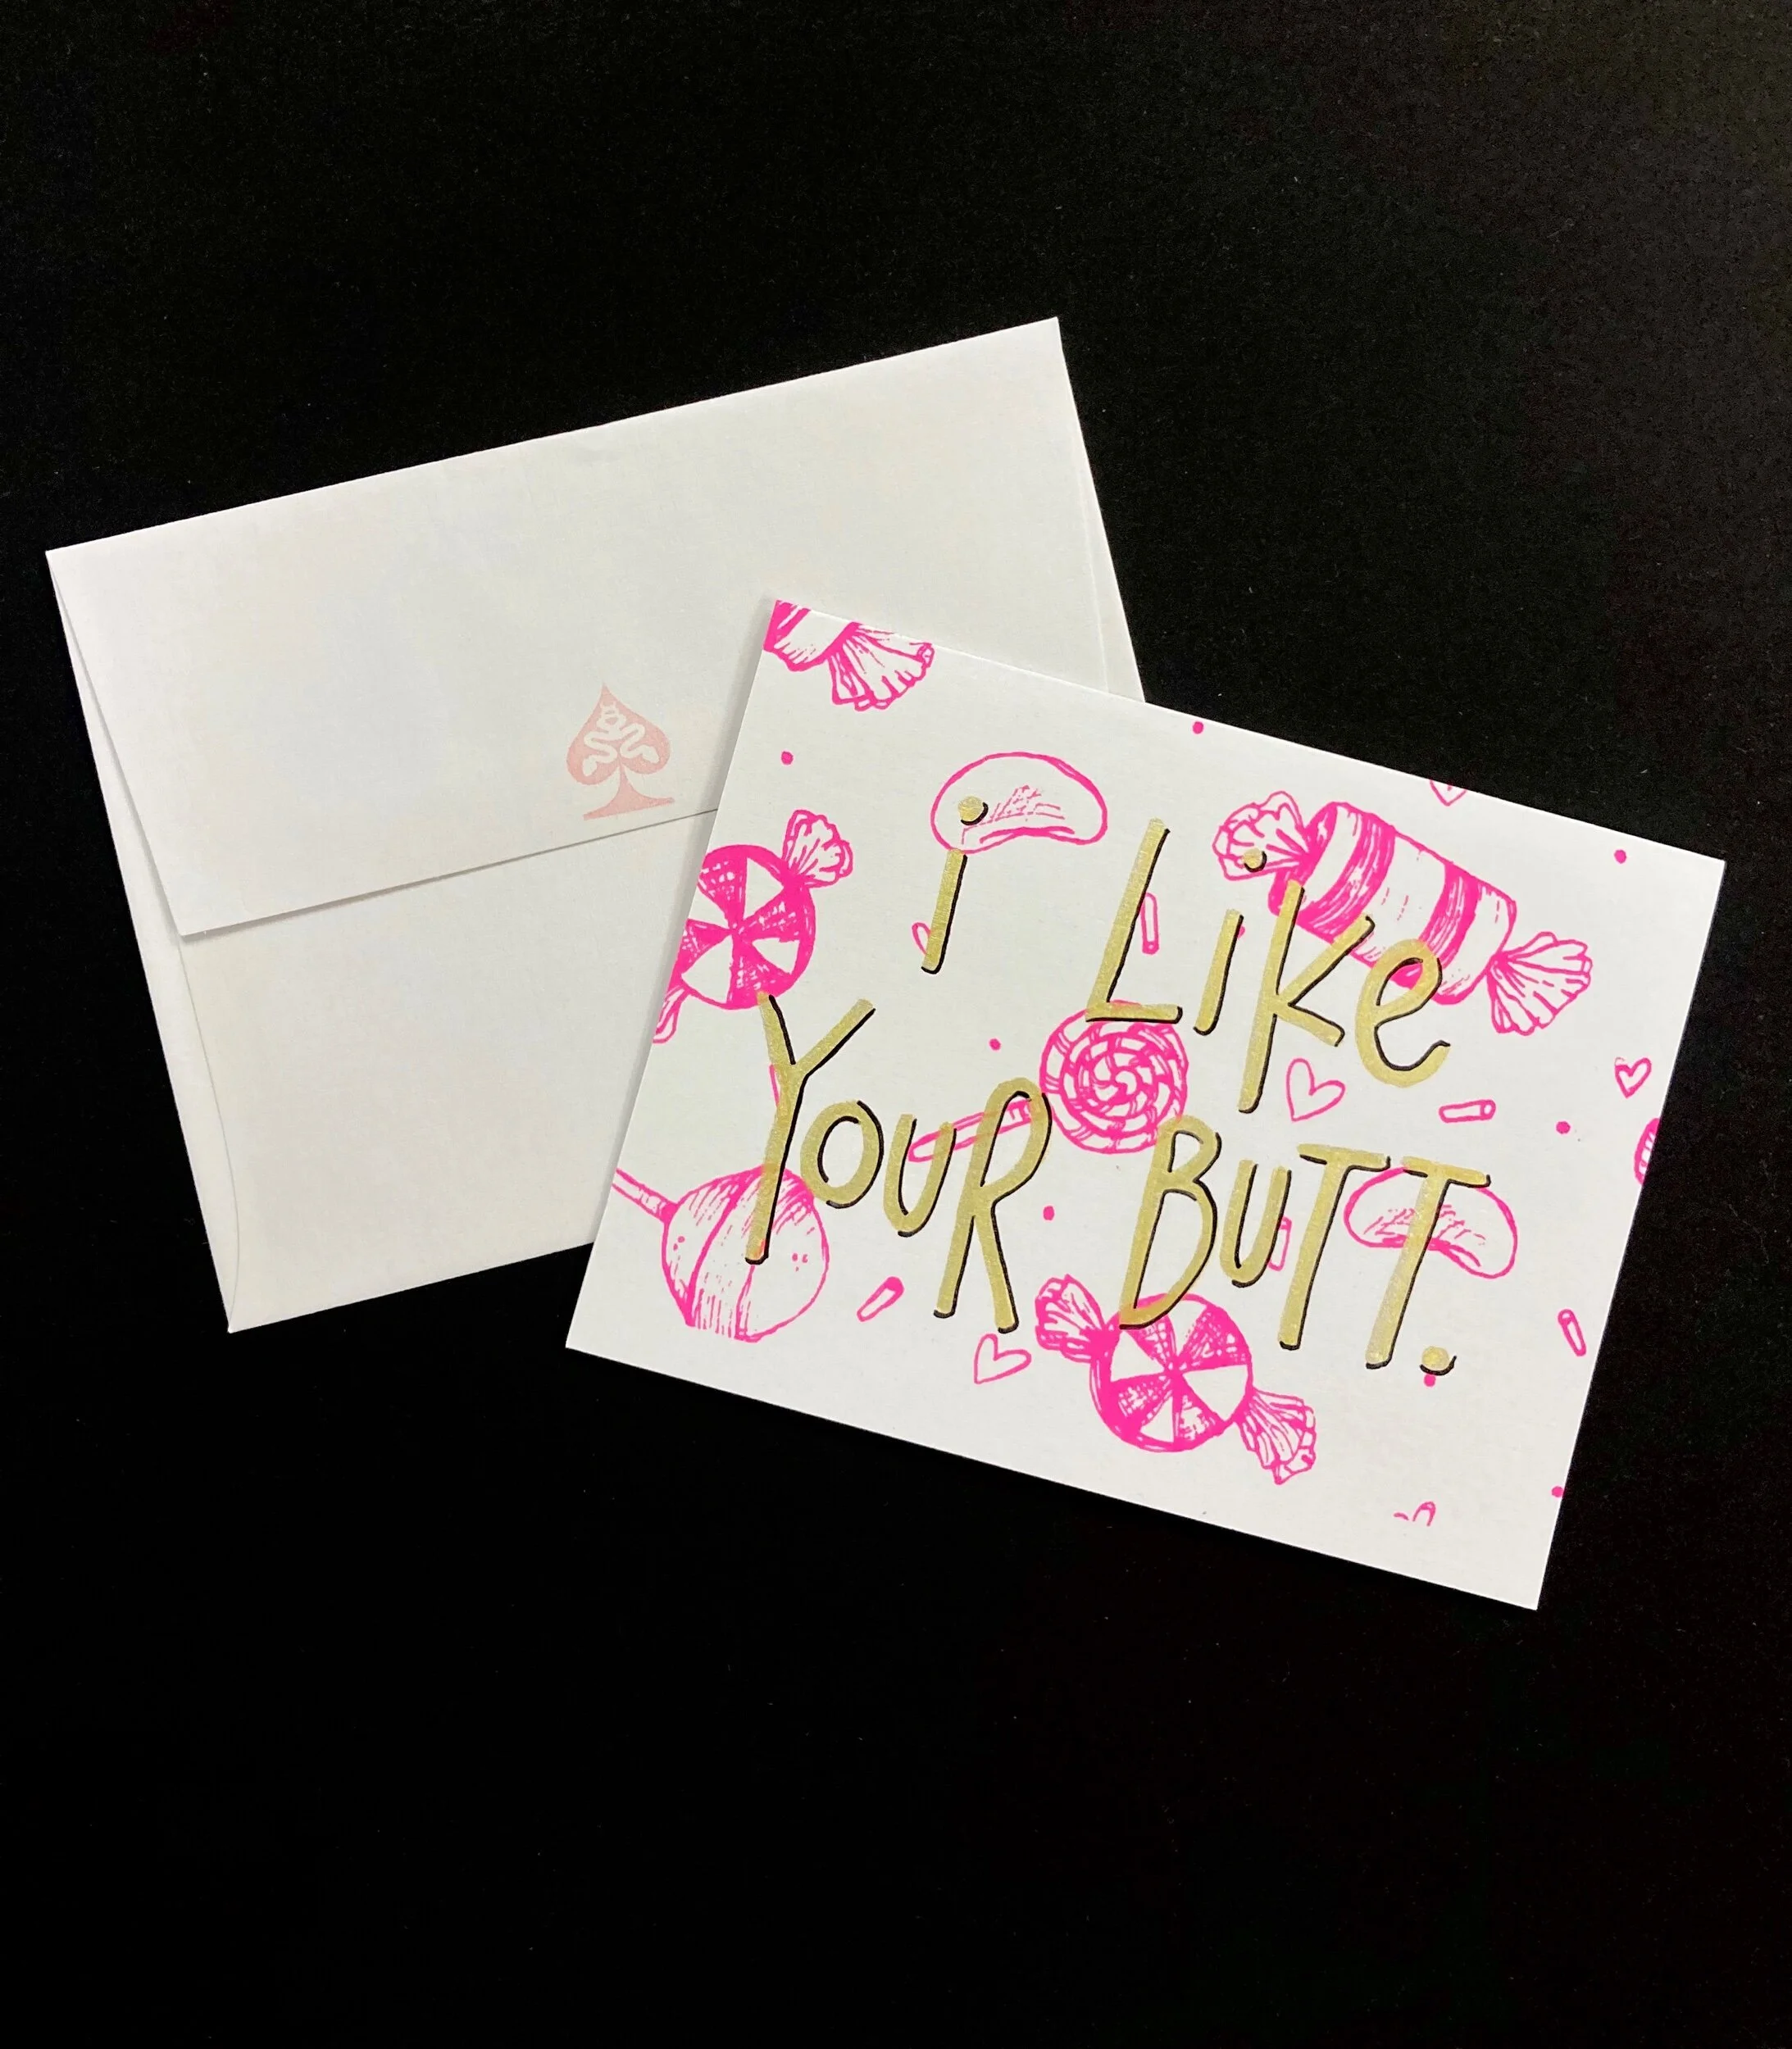 i Like
Your Butt.